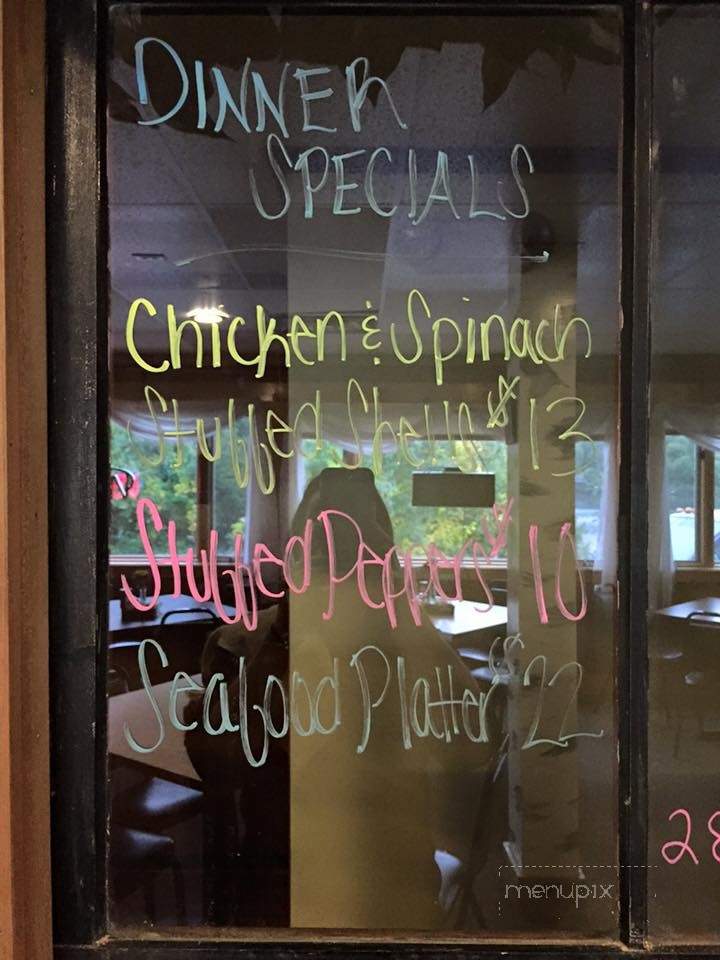 DINNER
SPECIALS
Chicken & Spinach
Stuffed Shells $13
Stuffed Peppers $10
Seafood Platter $22
28
menupix